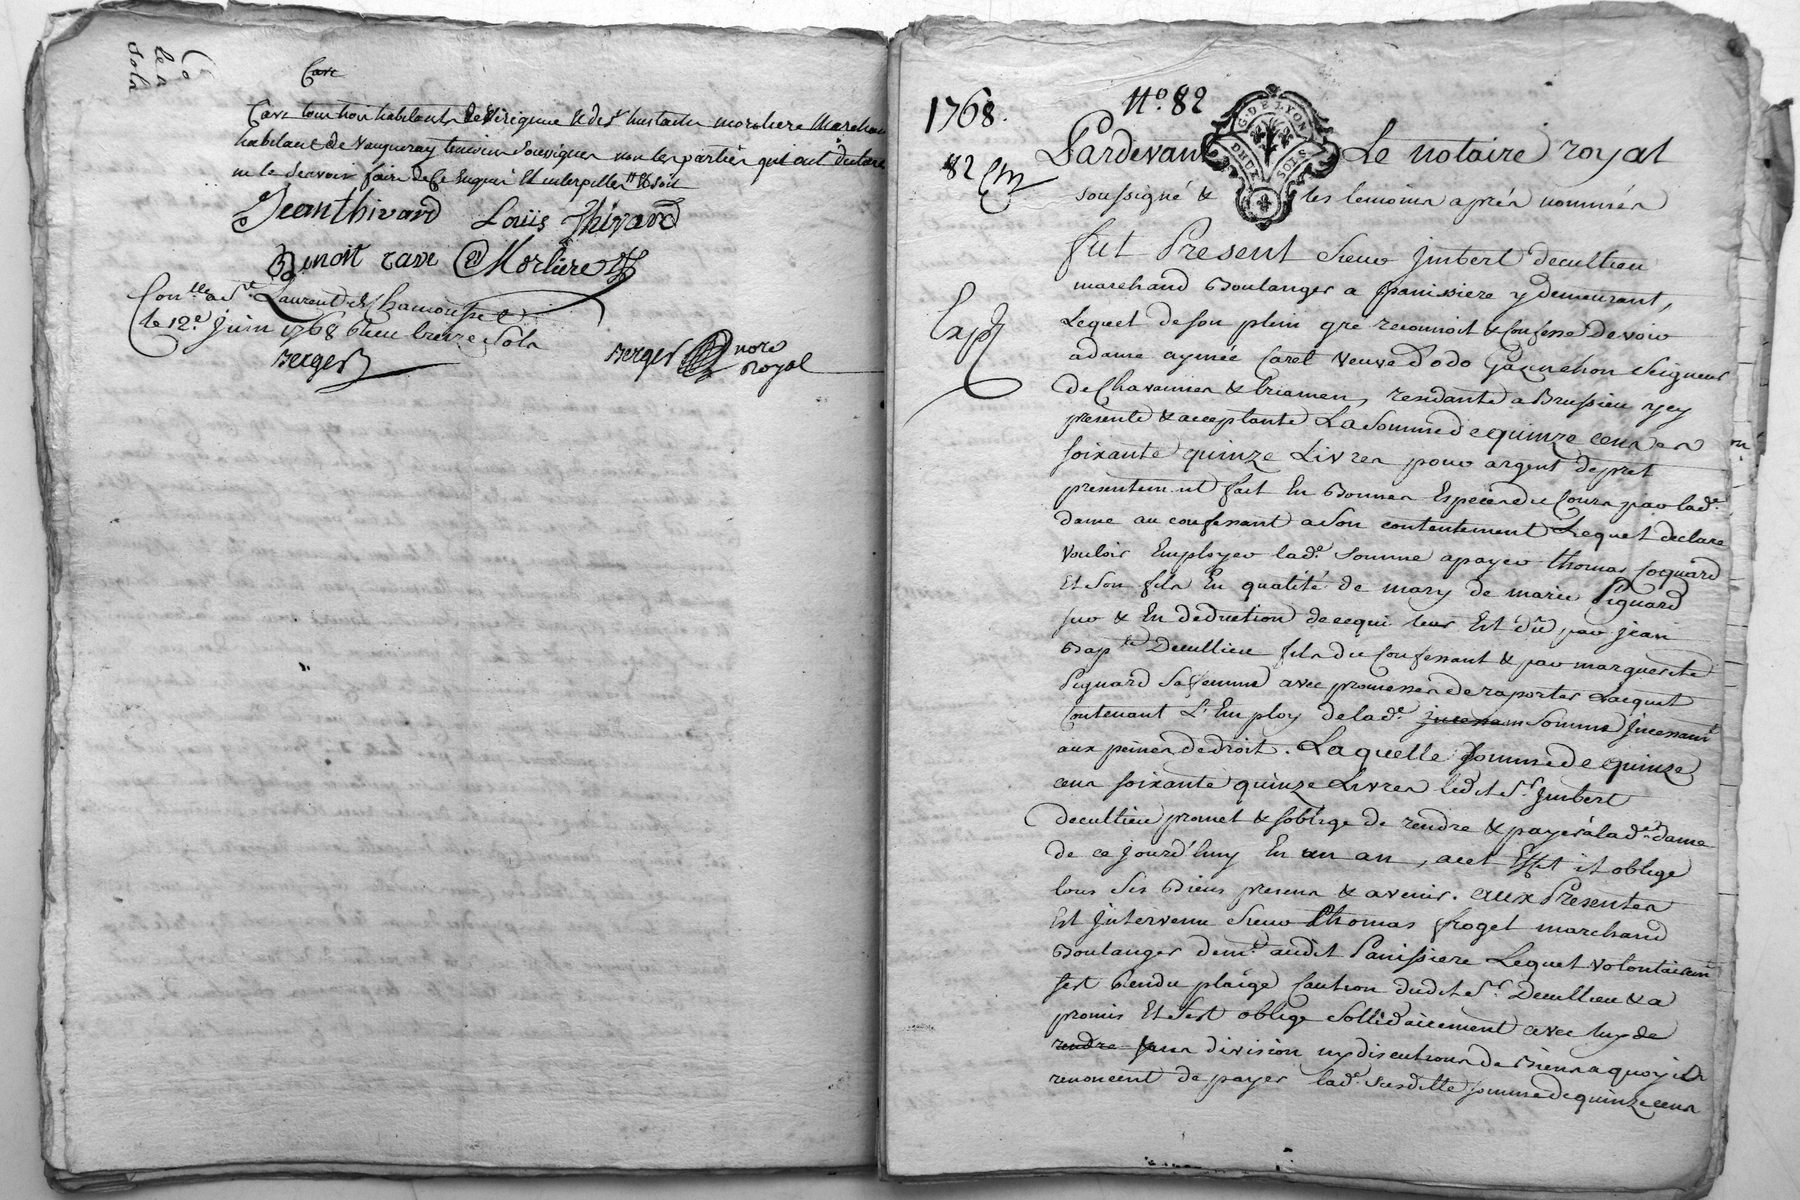 Co
les
sols
Rave
Rave tous trois habitants de Vérigneu & de sr Eustache morliere Marchan
habitant de Vaugneray temoins Soussignes non les parties qui ont declare
ne le Scavoir faire de Ce Enquis Et interpelles
Jean thivard Louis Thivard
Benoit rave Morliere
Conllé a St Laurent de Chamousset
le 12e Juin 1768 Reçu treize Sols
Berger
Berger nore
Royal
1768.
No. 82
82
G. DE LYON
DEUX SOLS
Pardevant Le notaire royal
soussigné & les temoins après nommés
fut Present Sieur Jmbert decullieu
marchand Boulanger a panissiere y demeurant,
Lequel de son plein gré reconnoit & Confesse Devoir
a dame aymée Caret veuve d'odo Gasnchon Seigneur
de Chavannes & triamen, residante a Brussieu icy
presente & acceptante La Somme de quinze cens
soixante quinze Livres pour argent de pret
presentement fait En Bonnes Especes du Cours par lade
dame au confessant a Son contentement Lequel declare
vouloir Employer lade Somme a payer thomas Coquard
Et Son fils En qualité de mary de marie Piguard
sur & En deduction de ce qui leur Est dû par jean
Bapte Decullieu fils du Confessant & par marguerite
Piguard Sa femme avec promesses de raporter Lacquit
Contenant L'Employ de lade jncessam Somme jncessamt
aux peines de droit. Laquelle Somme de quinze
cens soixante quinze Livres ledit Sr Jmbert
decullieu promet & s'oblige de rendre & payer a lade dame
de ce jourd'huy En un an, a cet Effet il oblige
tous Ses Biens presens & avenir. aux Presentes
Est Jntervenu Sieur thomas froget marchand
Boulanger demt audit Panissiere Lequel volontairemt
s'est Rendu plaige Caution dudit Sr Decullieu & a
promis Et S'est obligé Sollidairement avec luy de
rendre sans division ny discutions de Biens a quoy ils
renoncent de payer lade Susditte somme de quinze cens
Exp